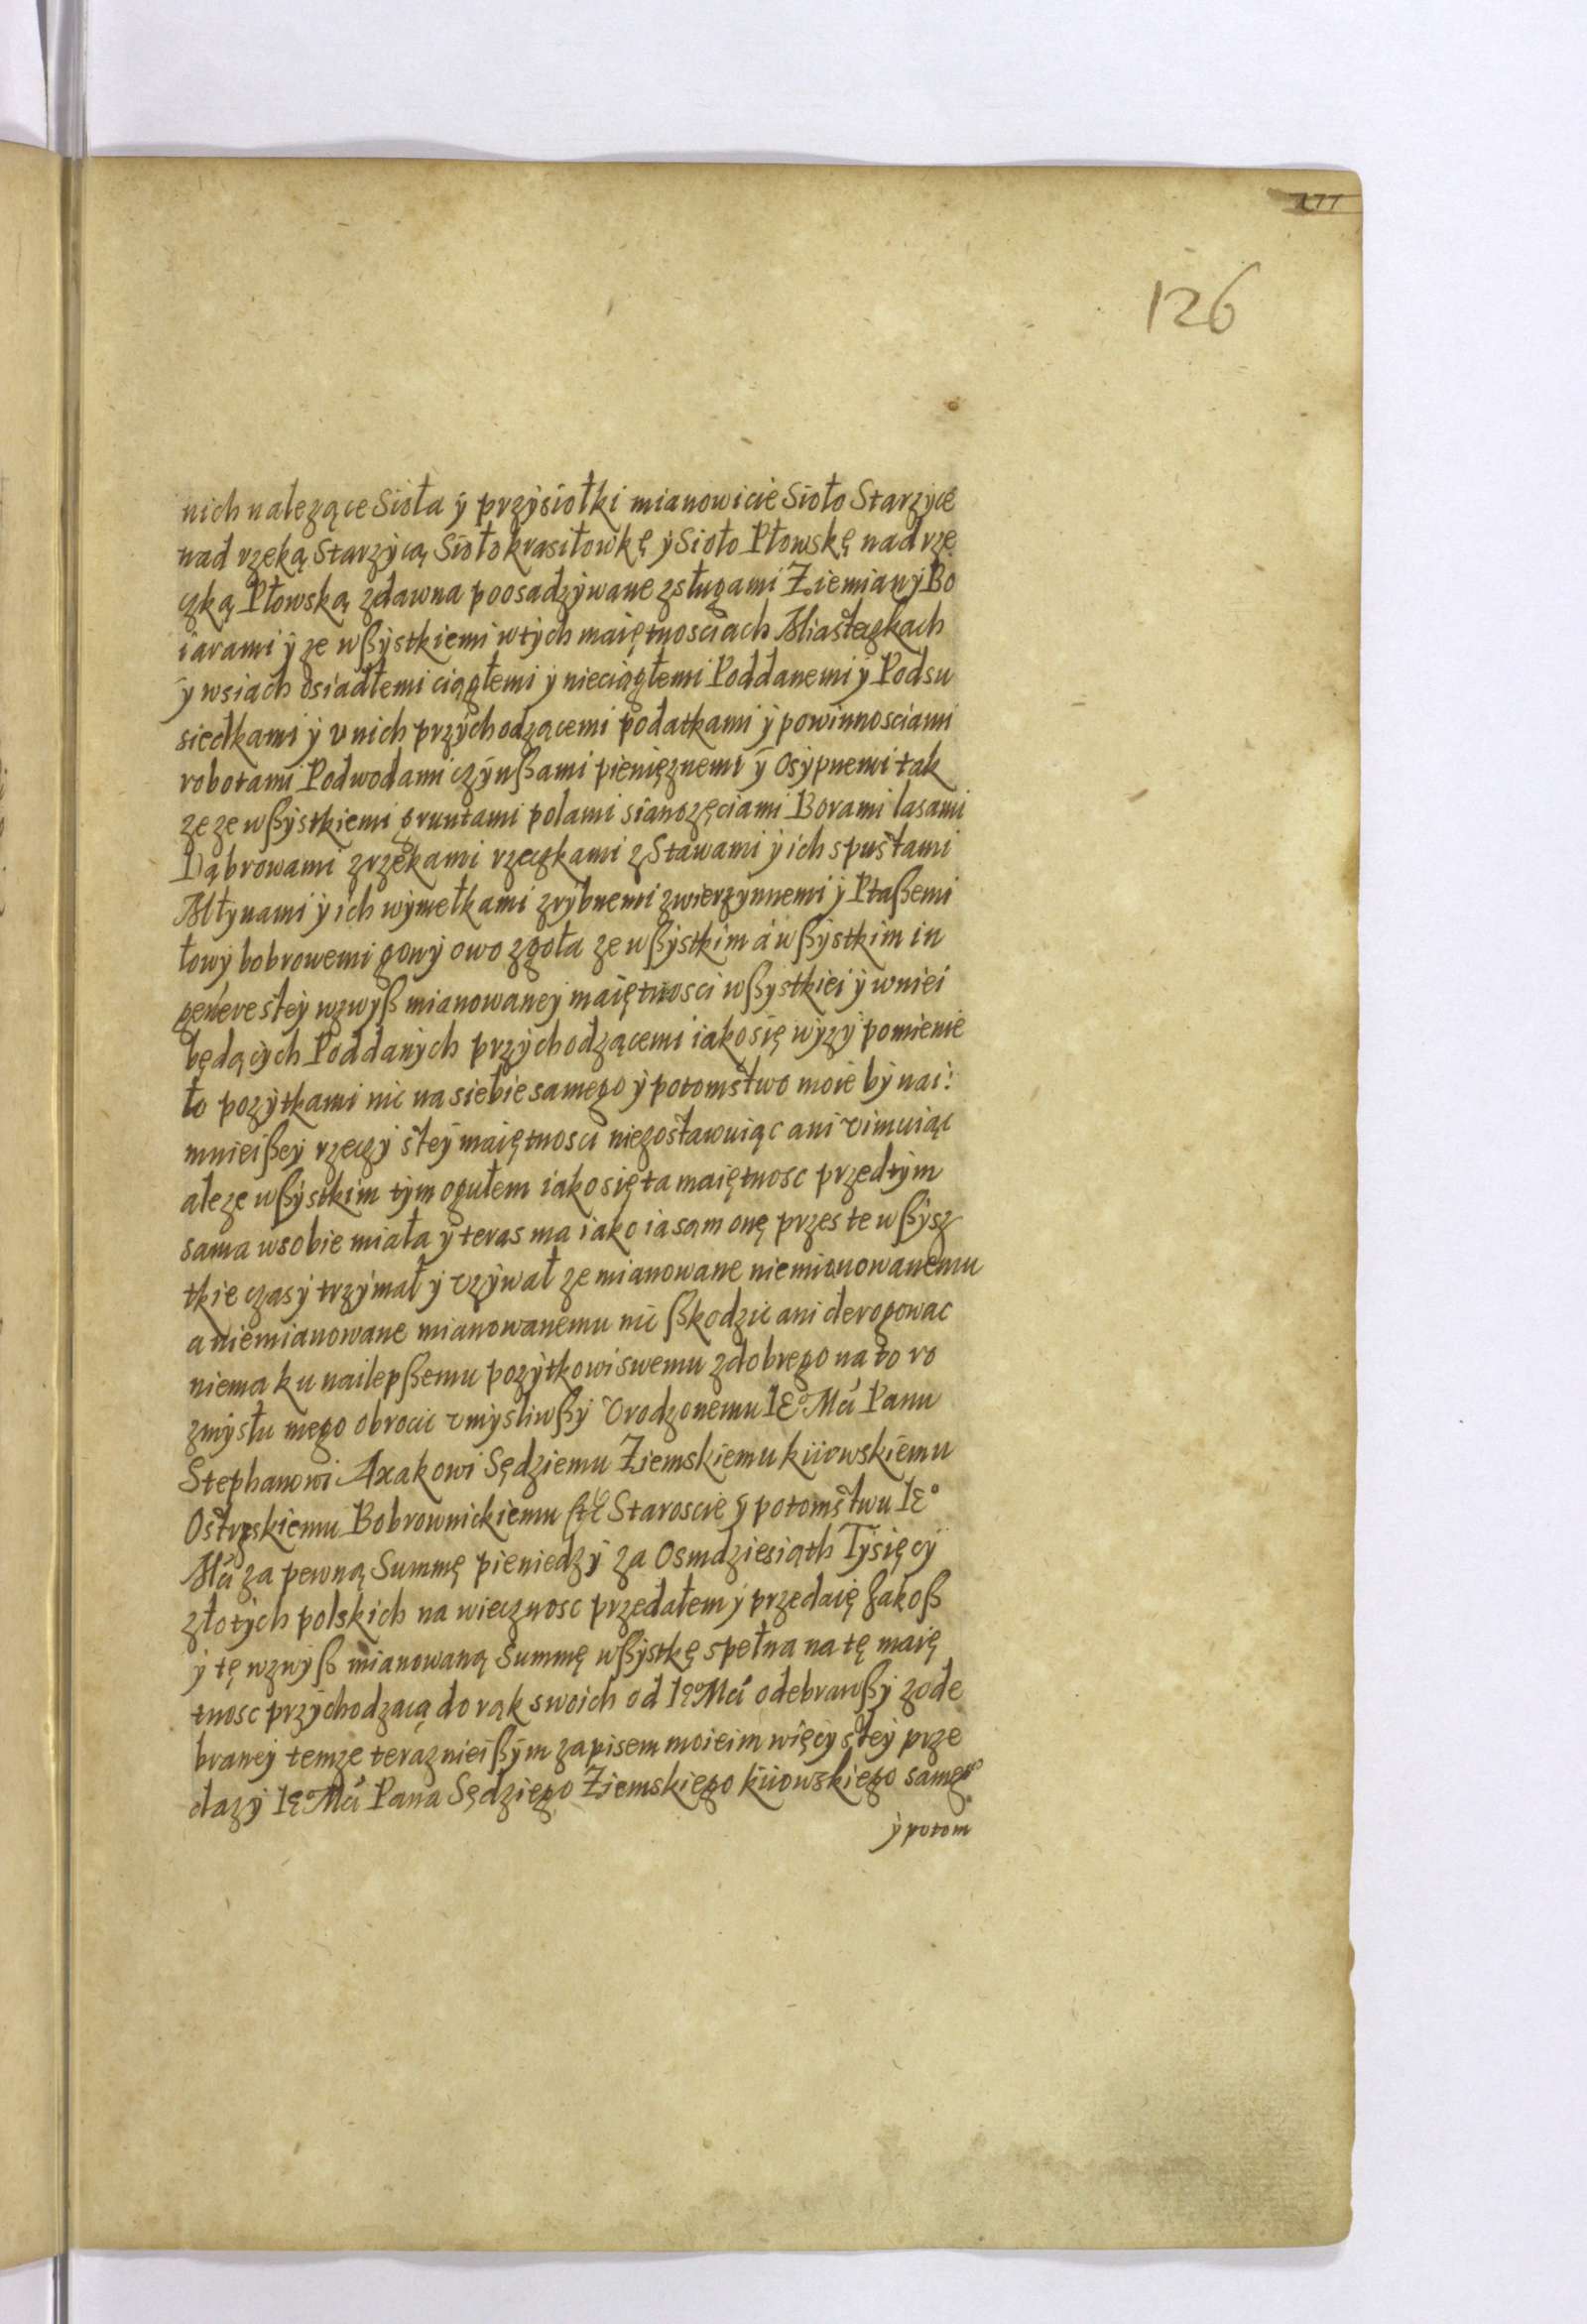 177
126
nich należące Sioła ÿ przÿsiołki mianowicie Sioło Starzÿcę
nad rzeką Starzÿcą Sioło krasiłowkę ÿ Sioło Płowskę nad rze
czką Płowską zdawna poosadzÿwane zsługami Ziemianÿ Bo
iarami ÿ ze wßÿstkiemi wtÿch maiętnosciach Miasteczkach
ÿ wsiach osiadłemi ciągłemi ÿ nieciągłemi Poddanemi ÿ Podsu
siedkami ÿ v nich przÿchodzącemi podatkami ÿ powinnosciami
robotami Podwodami czÿnßami pieniężnemi ÿ Osÿpnemi tak
ze ze wßÿstkiemi gruntami polami sianożęciami Borami lasami
Dąbrowami zrzekami rzeczkami z Stawami ÿ ich spustami
Młynami ÿ ich wÿmełkami zrÿbnemi zwierzÿnnemi ÿ Ptaßemi
łowÿ bobrowemi gonÿ owo zgoła ze wßÿstkim á wßÿstkim in
genere steÿ wzwÿß mianowaneÿ maiętnosci wßÿstkiei ÿ wniei
będącÿch Poddanÿch przÿchodzącemi iako się wÿzÿ pomienie
ło pozÿtkami nic na siebie samego ÿ potomstwo moie bÿ nai:
mnieißeÿ rzeczÿ steÿ maiętnosci niezostawuiąc ani vimuiąc
ale ze wßÿstkim tÿm ogułem iako się ta maiętnosc przedtÿm
sama wsobie miała ÿ teras ma iako ia sam onę przes te wßÿsz
tkie czasÿ trzÿmał ÿ vzÿwał ze mianowane niemianowanemu
a niemianowane mianowanemu nic ßkodzic ani derogowac
niema ku nailepßemu pozÿtkowi swemu zdobrego na to ro
zmÿsłu mego obrocic vmÿsliwßÿ Vrodzonemu IE° Mći Panu
Stephanowi Axakowi Sędziemu Ziemskiemu kiiowskiemu
Ostrzskiemu Bobrownickiemu etc Staroscie ÿ potomstwu IE°
Mći za pewną Summę pieniedzÿ za Osmdziesiąth Tÿsięcÿ
złotÿch polskich na wiecznosc przedałem ÿ przedaię Jakoß
ÿ tę wzwÿß mianowaną Summę wßÿstkę spełna na tę maię
tnosc przÿchodzącą do rąk swoich od IE° Mći odebrawßÿ z ode
braneÿ temze teraznieißÿm zapisem moieim więcÿsteÿ prze
dazÿ IE° Mći Pana Sędziego Ziemskiego kiiowskiego samego
ÿ potom